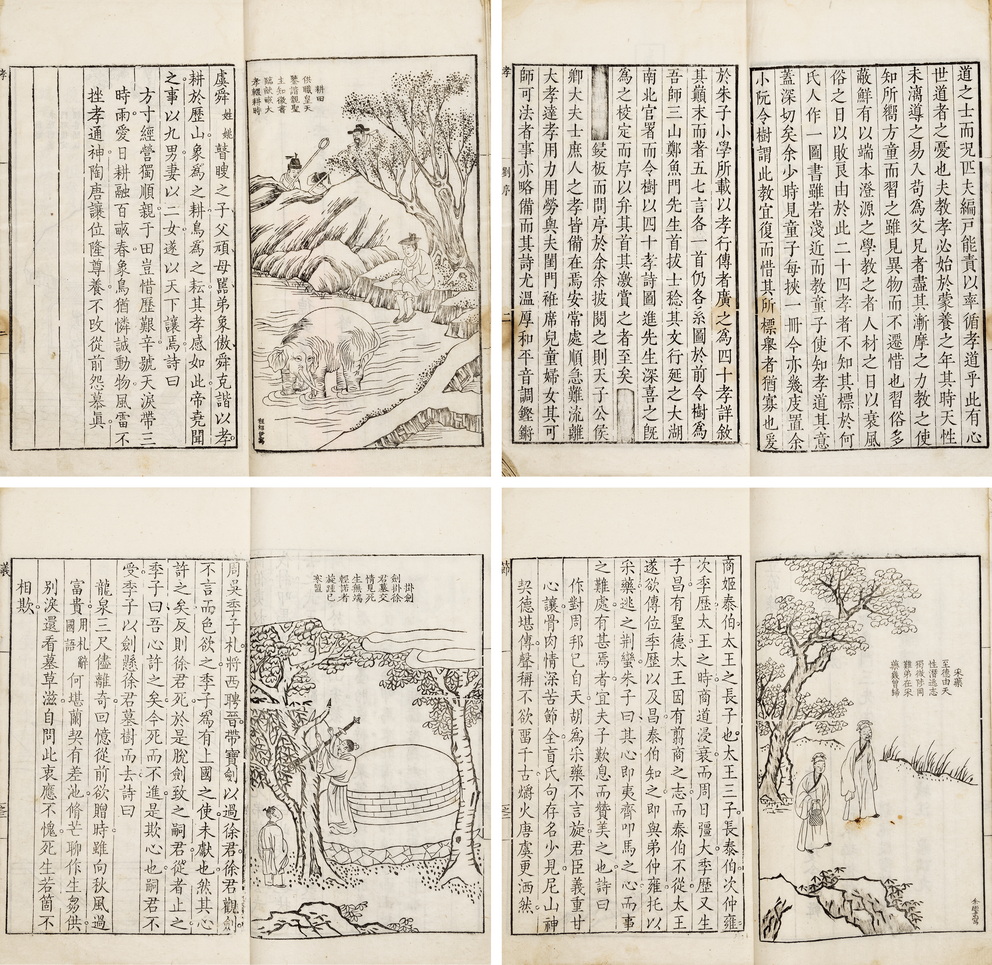 耕田
供職皇天
虞舜姓姚瞽瞍之子父頑母嚚弟象傲舜克諧以孝
耕於歷山象為之耕鳥為之耘其孝感如此帝堯聞
之事以九男妻以二女遂以天下讓焉詩曰
方寸經營獨順親于田豈惜歷艱辛號天淚帶三
時雨愛日耕融百畝春象鳥猶憐誠動物風雷不
挫孝通神陶唐讓位隆尊養不改從前怨慕真
孝
道之士而況匹夫編戶能責以率循孝道乎此有心
世道者之憂也夫教孝必始於蒙養之年其時天性
未漓導之易入苟為父兄者盡其漸摩之力教之使
知所嚮方童而習之雖見異物而不遷惜也習俗多
蔽鮮有以端本澄源之學教之者人材之日以衰風
俗之日以敗艮由於此二十四孝者不知其標於何
氏人作一圖書雖若淺近而教童子使知孝道其意
蓋深切矣余少時見童子每挾一冊今亦幾庋置余
小阮令樹謂此教宜復而惜其所標舉者猶寡也爰
於朱子小學所載以孝行傳者廣之為四十孝詳敘
其顛末而著五七言各一首仍各系圖於前令樹為
吾師三山鄭魚門先生首拔士稔其文行延之大湖
南北官署而令樹以四十孝詩圖進先生深喜之既
為之校定而序以弁其首其激賞之者至矣
鋟板而問序於余余披閱之則天子公侯
卿大夫士庶人之孝皆備在焉安常處順急難流離
大孝達孝用力用勞與夫閨門袵席兒童婦女其可
師可法者事亦略備而其詩尤溫厚和平音調鏗鏘
孝 劉序 二
掛劍
劍掛徐
君墓交
情見死
生無端
輕諾者
旋踵已
寒盟
周吳季子札將西聘晉帶寶劍以過徐君徐君觀劍
不言而色欲之季子為有上國之使未獻也然其心
許之矣反則徐君死於是脫劍致之嗣君從者止之
季子曰吾心許之矣今死而不進是欺心也嗣君不
受季子以劍懸徐君墓樹而去詩曰
龍泉三尺儘離奇回憶從前欲贈時雖向秋風過
富貴用札辭國語何堪蘭契有差池脩芒聊作生芻供
別淚還看墓草滋自問此衷應不愧死生若箇不
相欺
義
采藥
至德由天
性潛逃志
獨微終同
難弟在采
藥幾曾歸
商姬泰伯太王之長子也太王三子長泰伯次仲雍
次季歷太王之時商道浸衰而周日彊大季歷又生
子昌有聖德太王因有翦商之志而泰伯不從太王
遂欲傳位季歷以及昌泰伯知之即與弟仲雍托以
采藥逃之荊蠻朱子曰其心即夷齊叩馬之心而事
之難處有甚焉者宜夫子歎息而贊美之也詩曰
作對周邦已自天胡為采藥不言旋君臣義重甘
心讓骨肉情深苦節全盲氏句存名少見尼山神
契德堪傳聲稱不欲畱千古爝火唐虞更洒然
節